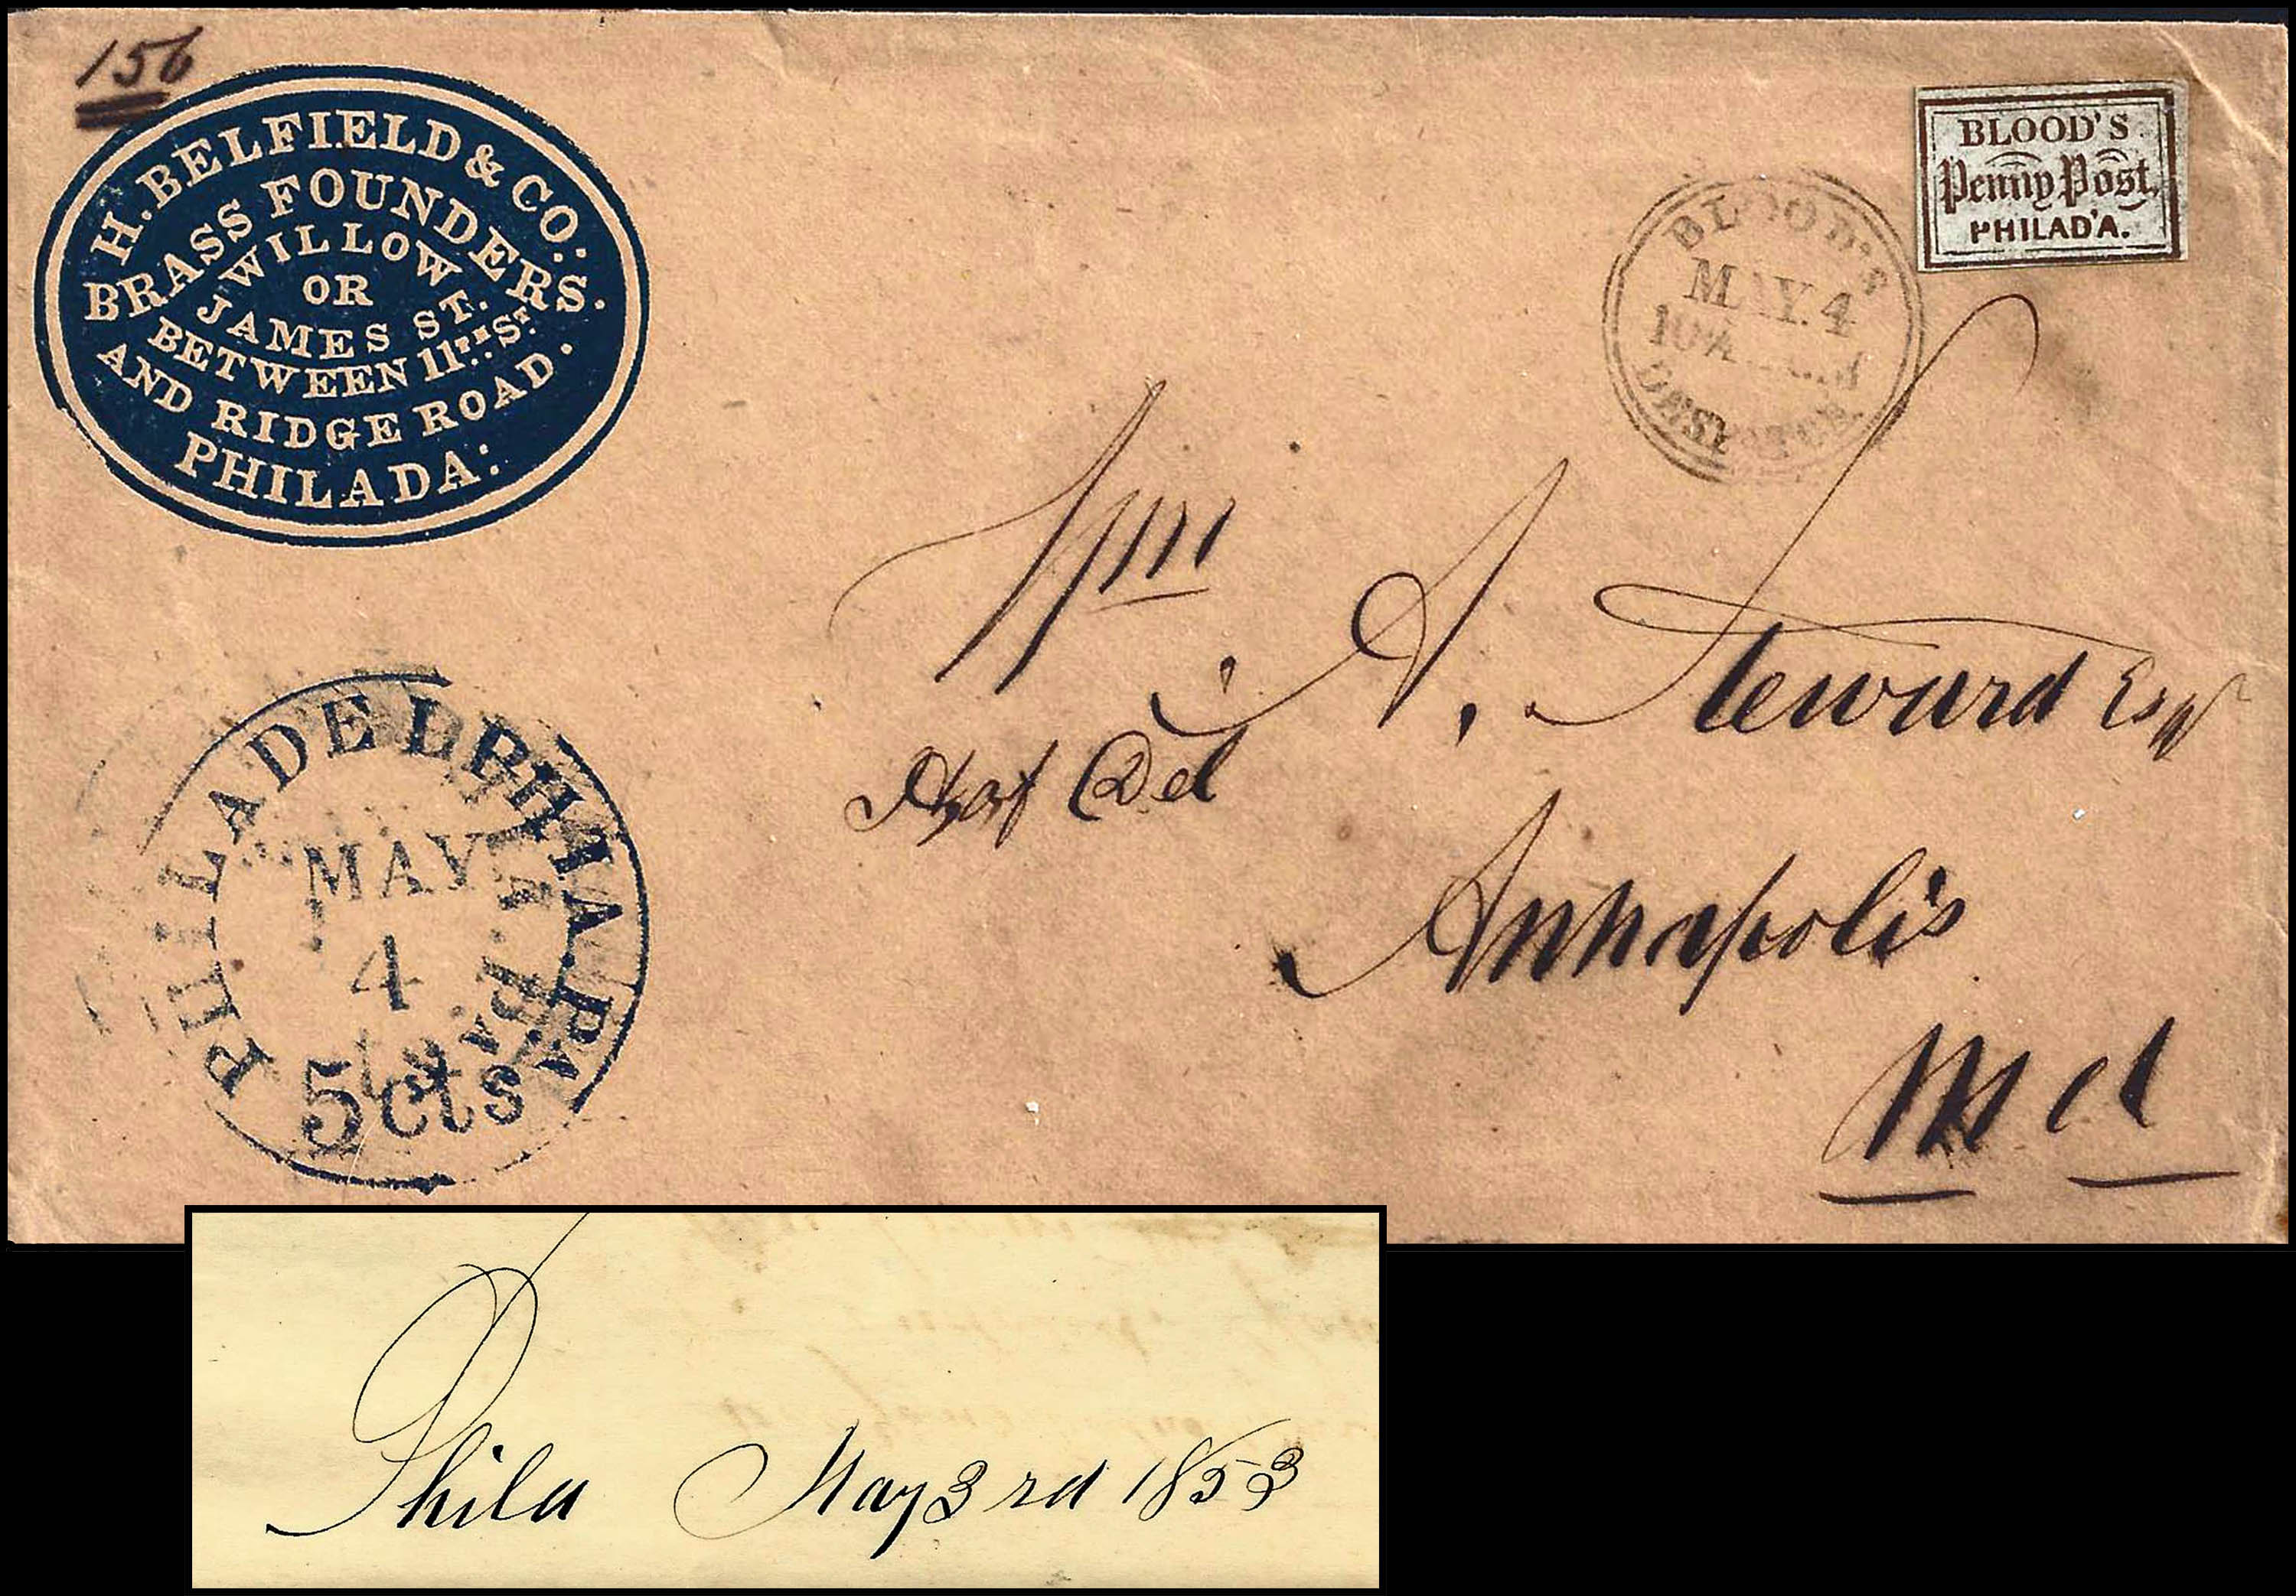 156
H. BELFIELD & CO:
BRASS FOUNDERS.
WILLOW
OR
JAMES ST.
BETWEEN 11TH ST.
AND RIDGE ROAD.
PHILADA:
BLOOD'S
Penny Post,
PHILAD'A.
BLOOD'S
MAY. 4
DESPATCH
Wm A. Steward Esqr
Annapolis
Md
PHILADELPHIA Pa.
MAY
4
5cts
Phila May 3rd 1853